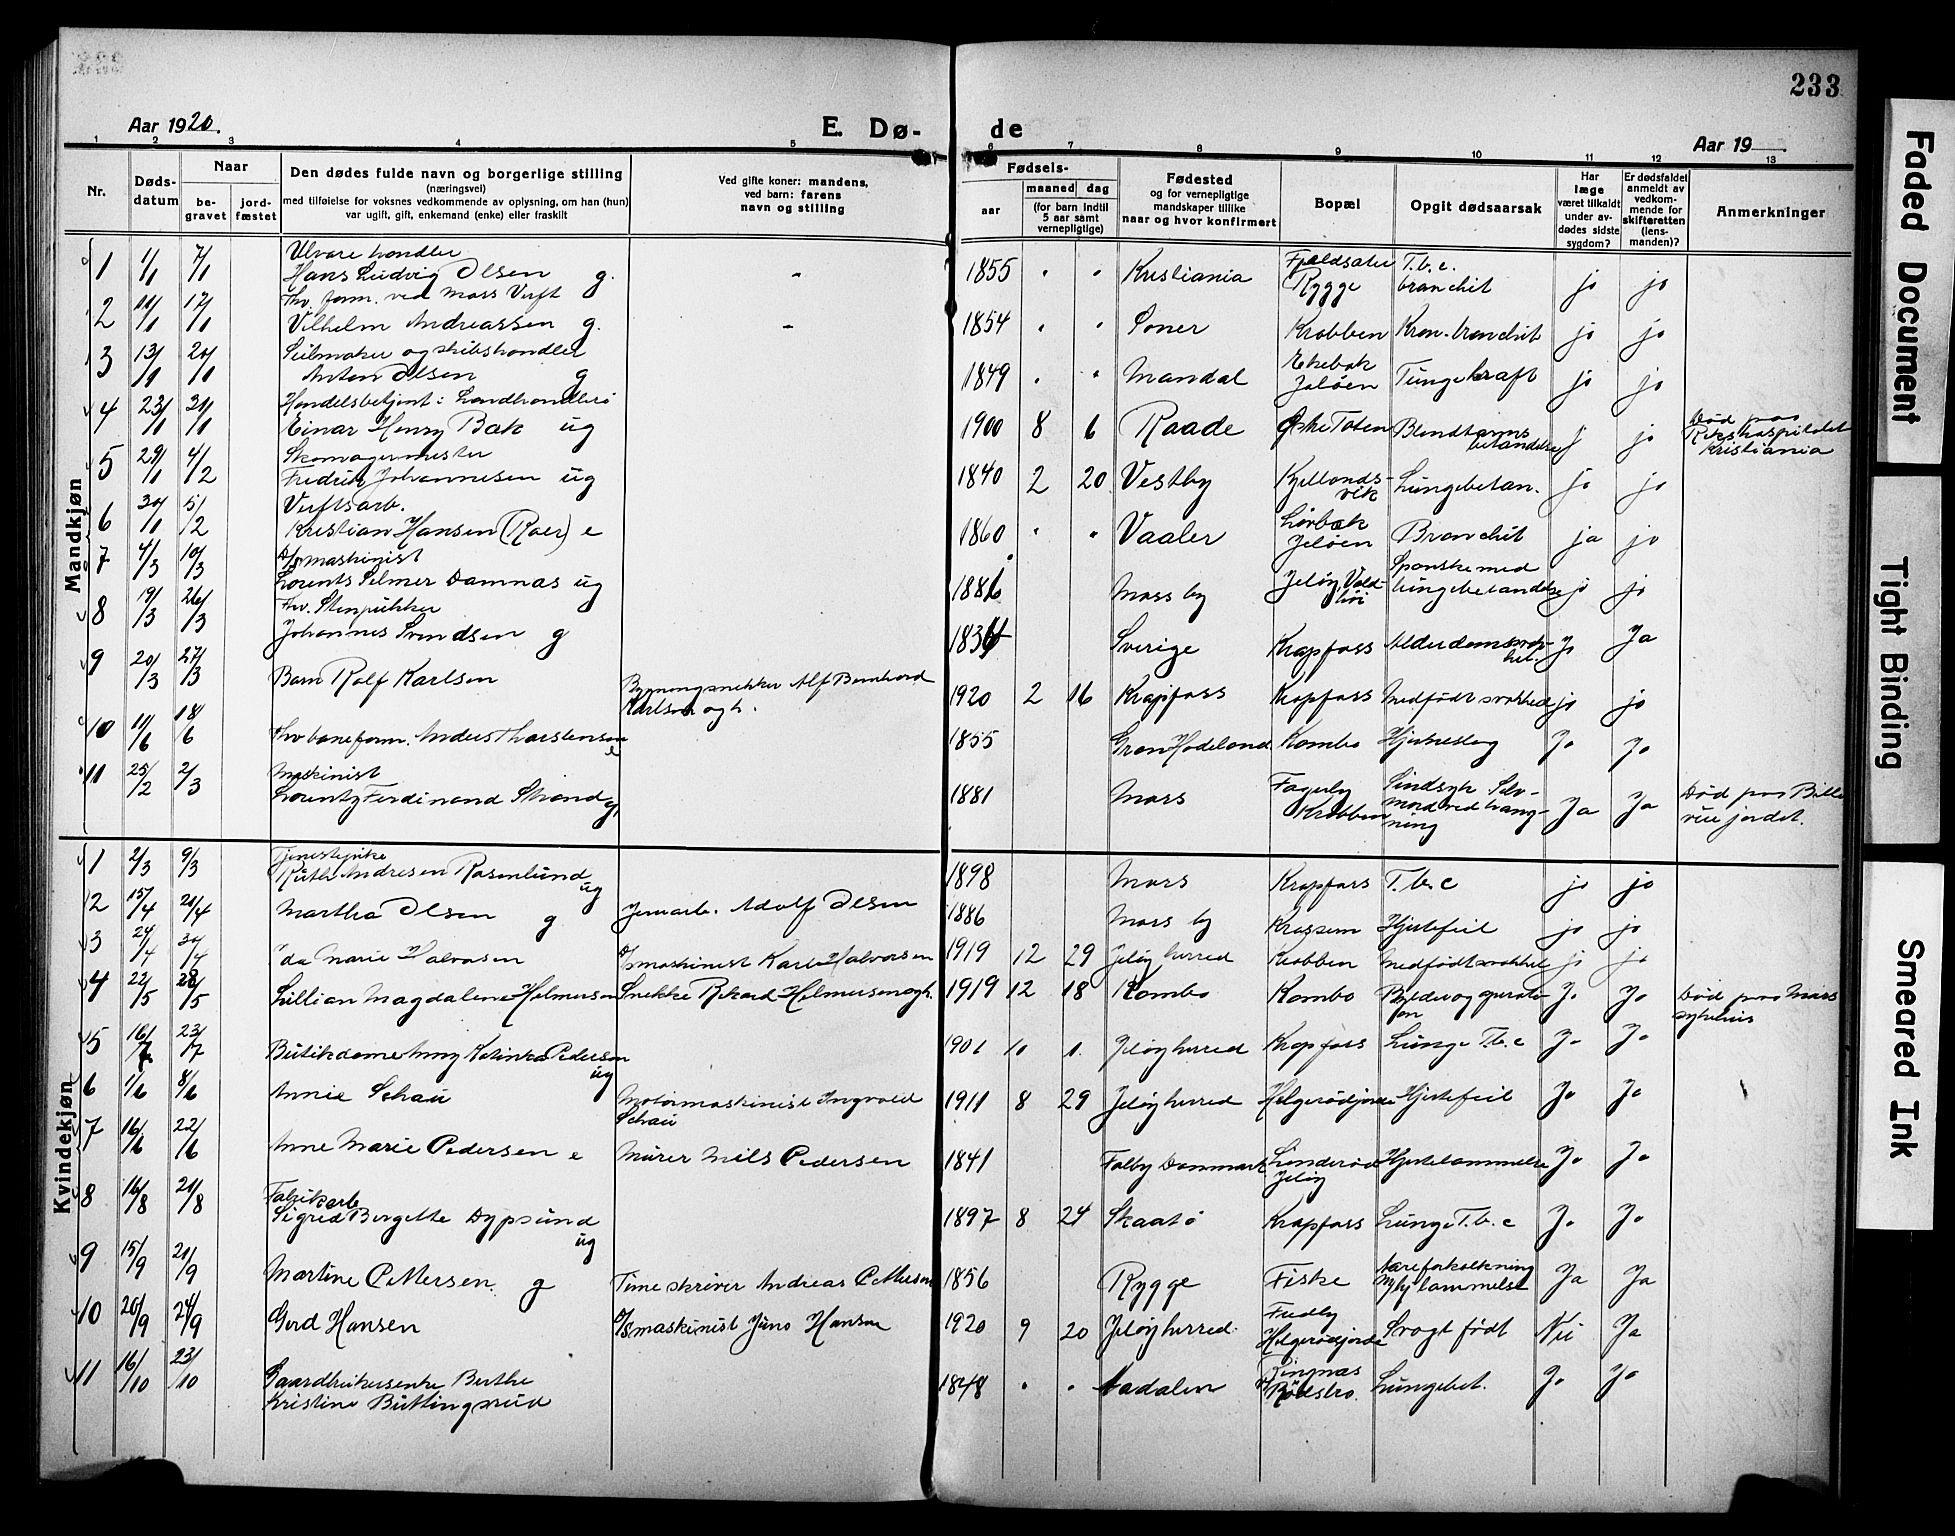 233
Aar 1920.
E. Dø-
de
Aar 19
1 2 3 4 5 6 7 8 9 10 11 12 13
Nr.
Døds-
datum
Naar
be-
gravet
jord-
fæstet
Den dødes fulde navn og borgerlige stilling
(næringsvei)
med tilføielse for voksnes vedkommende av oplysning, om han (hun)
var ugift, gift, enkemand (enke) eller fraskilt
Ved gifte koner: mandens,
ved barn: farens
navn og stilling
Fødsels-
aar
maaned
dag
(for barn indtil
5 aar samt
vernepligtige)
Fødested
og for vernepligtige
mandskaper tillike
naar og hvor konfirmert
Bopæl
Opgit dødsaarsak
Har
læge
været tilkaldt
under av-
dødes sidste
sygdom?
Er dødsfaldet
anmeldt av
vedkom-
mende for
skifteretten
(lens-
manden)?
Anmerkninger
Mandkjøn
1 1/1 7/1 Ulvarehandler
Hans Ludvig Olsen g. 1855 Kristiania Fjeldsæter Rygge T.b.c. bronchit jo jo
2 11/1 17/1 Fhv. form. ved Moss Verft
Vilhelm Andreassen g. 1854 Soner Krabben Kron. bronchit jo jo
3 13/1 20/1 Seilmaker og skibshandler
Anton Olsen g 1849 Mandal Ekebak Jeløen Tungekræft jo jo
4 23/1 31/1 Handelsbetjent i Landhandleri
Einar Henry Bak ug 1900 8 6 Raade Østre Toten Blindtarms betændelse j jo Død paa Rikshospitalet Kristiania
5 29/1 4/2 Skomagermester
Fredrik Johannesen ug 1840 2 20 Vestby Kjellands-vik Lungebetæn. jo jo
6 30/1 5/2 Verftsarb.
Kristian Hansen (Roer) e 1860 Vaaler Lørbak Jeløen Bronchit ja jo
7 4/3 10/3 D/S maskinist
Lorents Selmer Damnæs ug 1886 Moss by Jeløy, Spanske med lungebetændelse jo jo
8 19/3 26/3 Fhv. Stenpukker
Johannes Svendsen g 1834 Sverige Krapfoss Alderdomssvak-het. Jo Ja
9 20/3 27/3 Barn Rolf Karlsen Bygningsnekker Alf Bernhard Karlsen og h. 1920 2 16 Krapfoss Krapfoss Medfødt svakhed jo jo
10 11/6 18/6 Fhv baneform. Anders Thorstensen e 1855 Gran Hadeland Kambo Hjerteslag Jo Jo
11 25/2 2/3 Maskinist
Lorentz Ferdinand Strand g, 1881 Moss Fagerby Krabben Sindsyk Selv-mord ved hæng-ning Ja Ja Død paa Belle vue jordet.
Kvindekjøn
1 2/3 9/3 Tjenestepike
Ruth Andresen Rosenlund ug 1898 Moss Krapfoss T.b.c jo jo
2 15/4 21/4 Martha Olsen g Jernarb. Adolf Olsen 1886 Moss by Krossern Hjertefeil jo jo
3 24/4 30/4 Ida Marie Halvorsen D/S maskinist Karl Halvorsen 1919 12 29 Jeløy herred Krabben Medfødt svakhet jo jo
4 22/5 28/5 Lillian Magdalene Helmersen Snekker Rikard Helmersen og h. 1919 12 18 Kambo Kambo Jo Jo Død paa Moss sykehus
5 16/7 23/7 Butikdame Anny Katinka Pedersen ug 1901 Jeløy herred Krapfoss Lunge T.b.c Jo Jo
6 1/6 8/6 Annie Schau Motormaskinist Ingvald Schau 1911 8 29 Jeløy herred Helgerødjorde Hjertefeil Jo Jo
7 16/6 22/6 Anne Marie Pedersen e Murer Nils Pedersen 1841 Falby Danmark Jeløy Hjertelammelse Jo Jo
8 16/8 21/8 Fabrikarb
Sigrid Bergette Dypsund ug 1897 8 24 Skaatø Krapfoss Lunge T.b.c Jo Jo
9 15/9 21/9 Martine Pettersen. g Timeskriver Andreas Pettersen 1856 Rygge Fiske Aareforkalkning lammelse Ja Ja
10 20/9 24/9 Gerd Hansen D/S maskinist Jens Hansen 1920 9 20 Jeløy herred. Fredly Helgerødjorde Svagt født Nei Ja
11 16/10 23/10 Gaardbrukerenke Berthe
Kristine Buttingsrud 1848 Aadalen Ringnæs Rødsbro. Lungebet. Jo Jo
Faded Document
Tight Binding
Smeared Ink